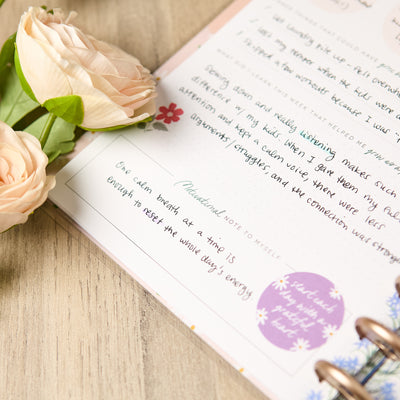 THINGS THAT COULD HAVE
1. Let laundry pile up - felt overwhel
2. Lost my temper when the kids were
3. Skipped a few workouts because I was
WHAT DID I LEARN THIS WEEK THAT HELPED ME
Slowing down and really listening makes such
difference w/ my kids. When I gave them my full
attention and kept a calm voice, there were less
arguments/struggles, and the connection was stronger
Motivational NOTE TO MYSELF
One calm breath at a time is
enough to reset the whole day's energy
start each
day with a
grateful
heart